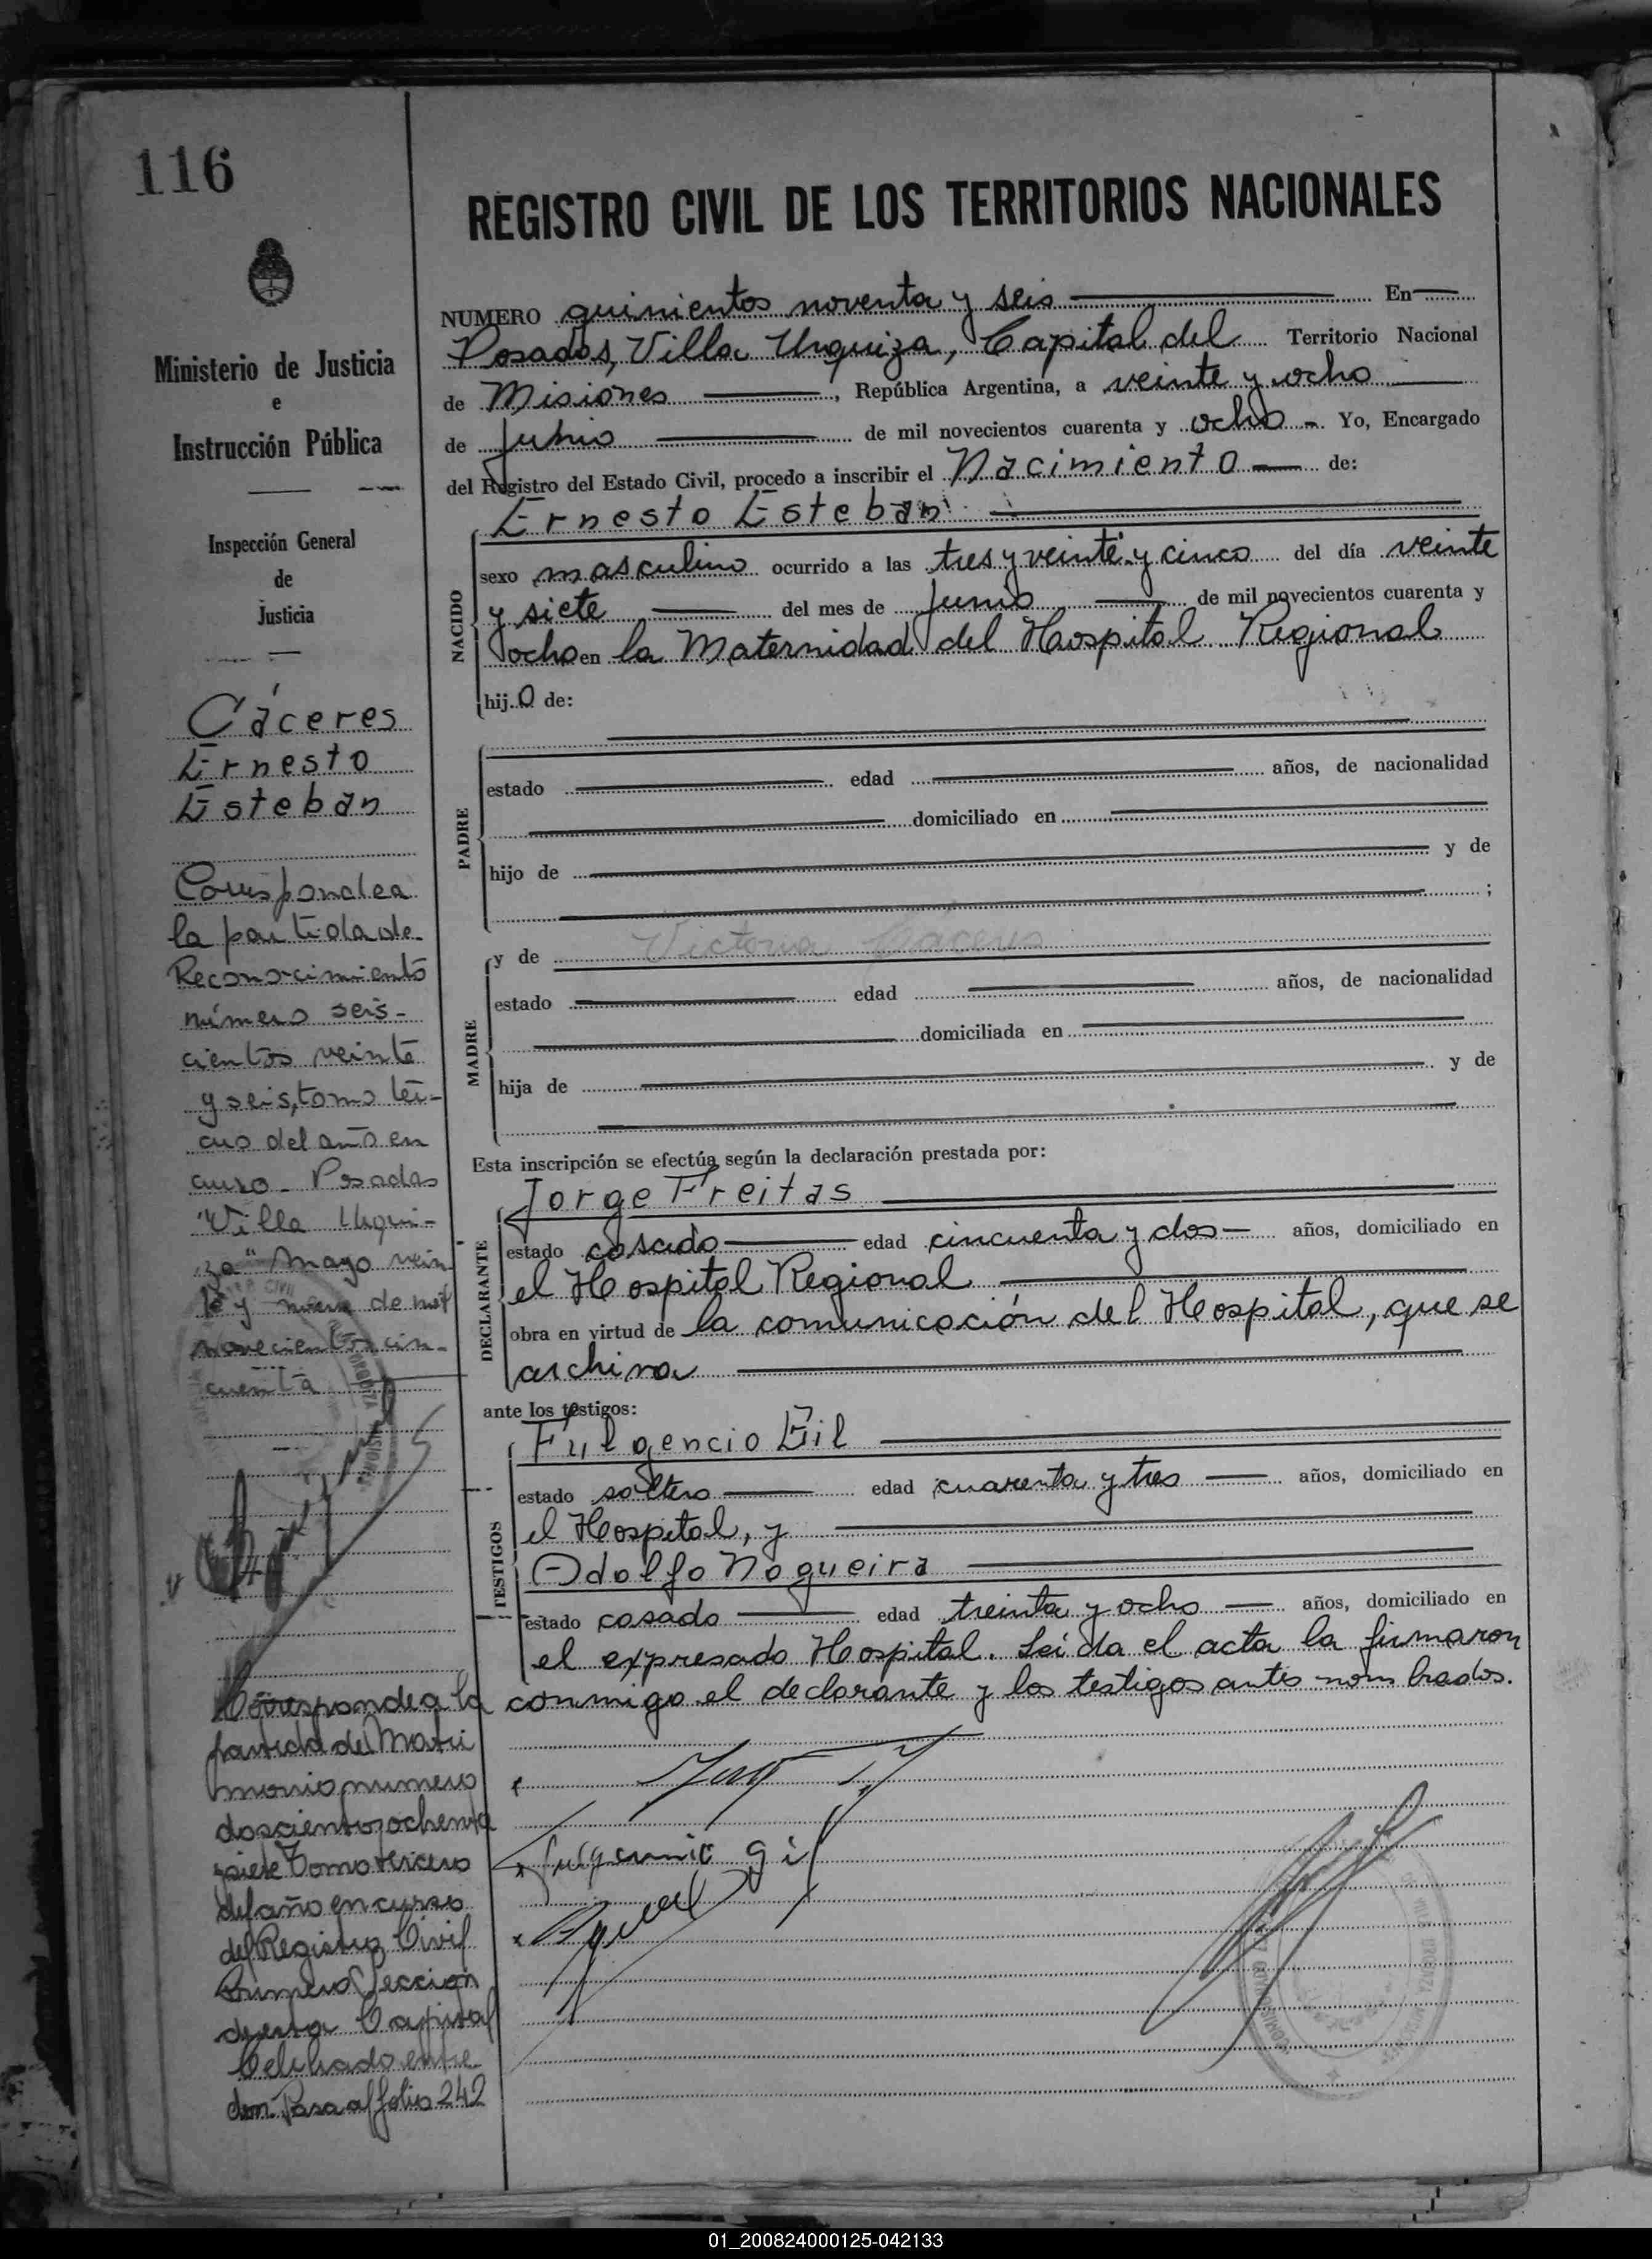 116
REGISTRO CIVIL DE LOS TERRITORIOS NACIONALES
Ministerio de Justicia
e
Instrucción Pública
Inspección General
de
Justicia
Cáceres
Ernesto
Esteban
Corresponde a
la partida de
Reconocimiento
número seis-
cientos veinte
y seis, tomo ter-
cero del año en
curso - Posadas
"Villa Urqui-
za" Mayo vein
te y nueve de mil
novecientos cin-
cuenta
Corresponde a la
partida del Matri
monio numero
doscientos ochenta
y siete Tomo tercero
del año en curso
del Registro Civil
Primera Sección
de esta Capital
Celebrado entre
don. Pasa al folio 242
NUMERO quinientos noventa y seis En
Posadas, Villa Urquiza, Capital del Territorio Nacional
de Misiones, República Argentina, a veinte y ocho
de Junio de mil novecientos cuarenta y ocho - Yo, Encargado
del Registro del Estado Civil, procedo a inscribir el Nacimiento de:
Ernesto Esteban
NACIDO
sexo masculino ocurrido a las tres y veinte y cinco del día veinte
y siete del mes de Junio de mil novecientos cuarenta y
ocho en la Maternidad del Hospital Regional
hijo de:
PADRE
estado edad años, de nacionalidad
domiciliado en
hijo de y de
;
MADRE
y de Victoria Cáceres
estado edad años, de nacionalidad
domiciliada en
hija de y de
Esta inscripción se efectúa según la declaración prestada por:
DECLARANTE
Jorge Freitas
estado casado edad cincuenta y dos años, domiciliado en
el Hospital Regional
obra en virtud de la comunicación del Hospital, que se
archiva
ante los testigos:
TESTIGOS
Fulgencio Gil
estado soltero edad cuarenta y tres años, domiciliado en
el Hospital, y
Adolfo Nogueira
estado casado edad treinta y ocho años, domiciliado en
el expresado Hospital. Leída el acta la firmaron
conmigo el declarante y los testigos antes nombrados.
01_200824000125-042133